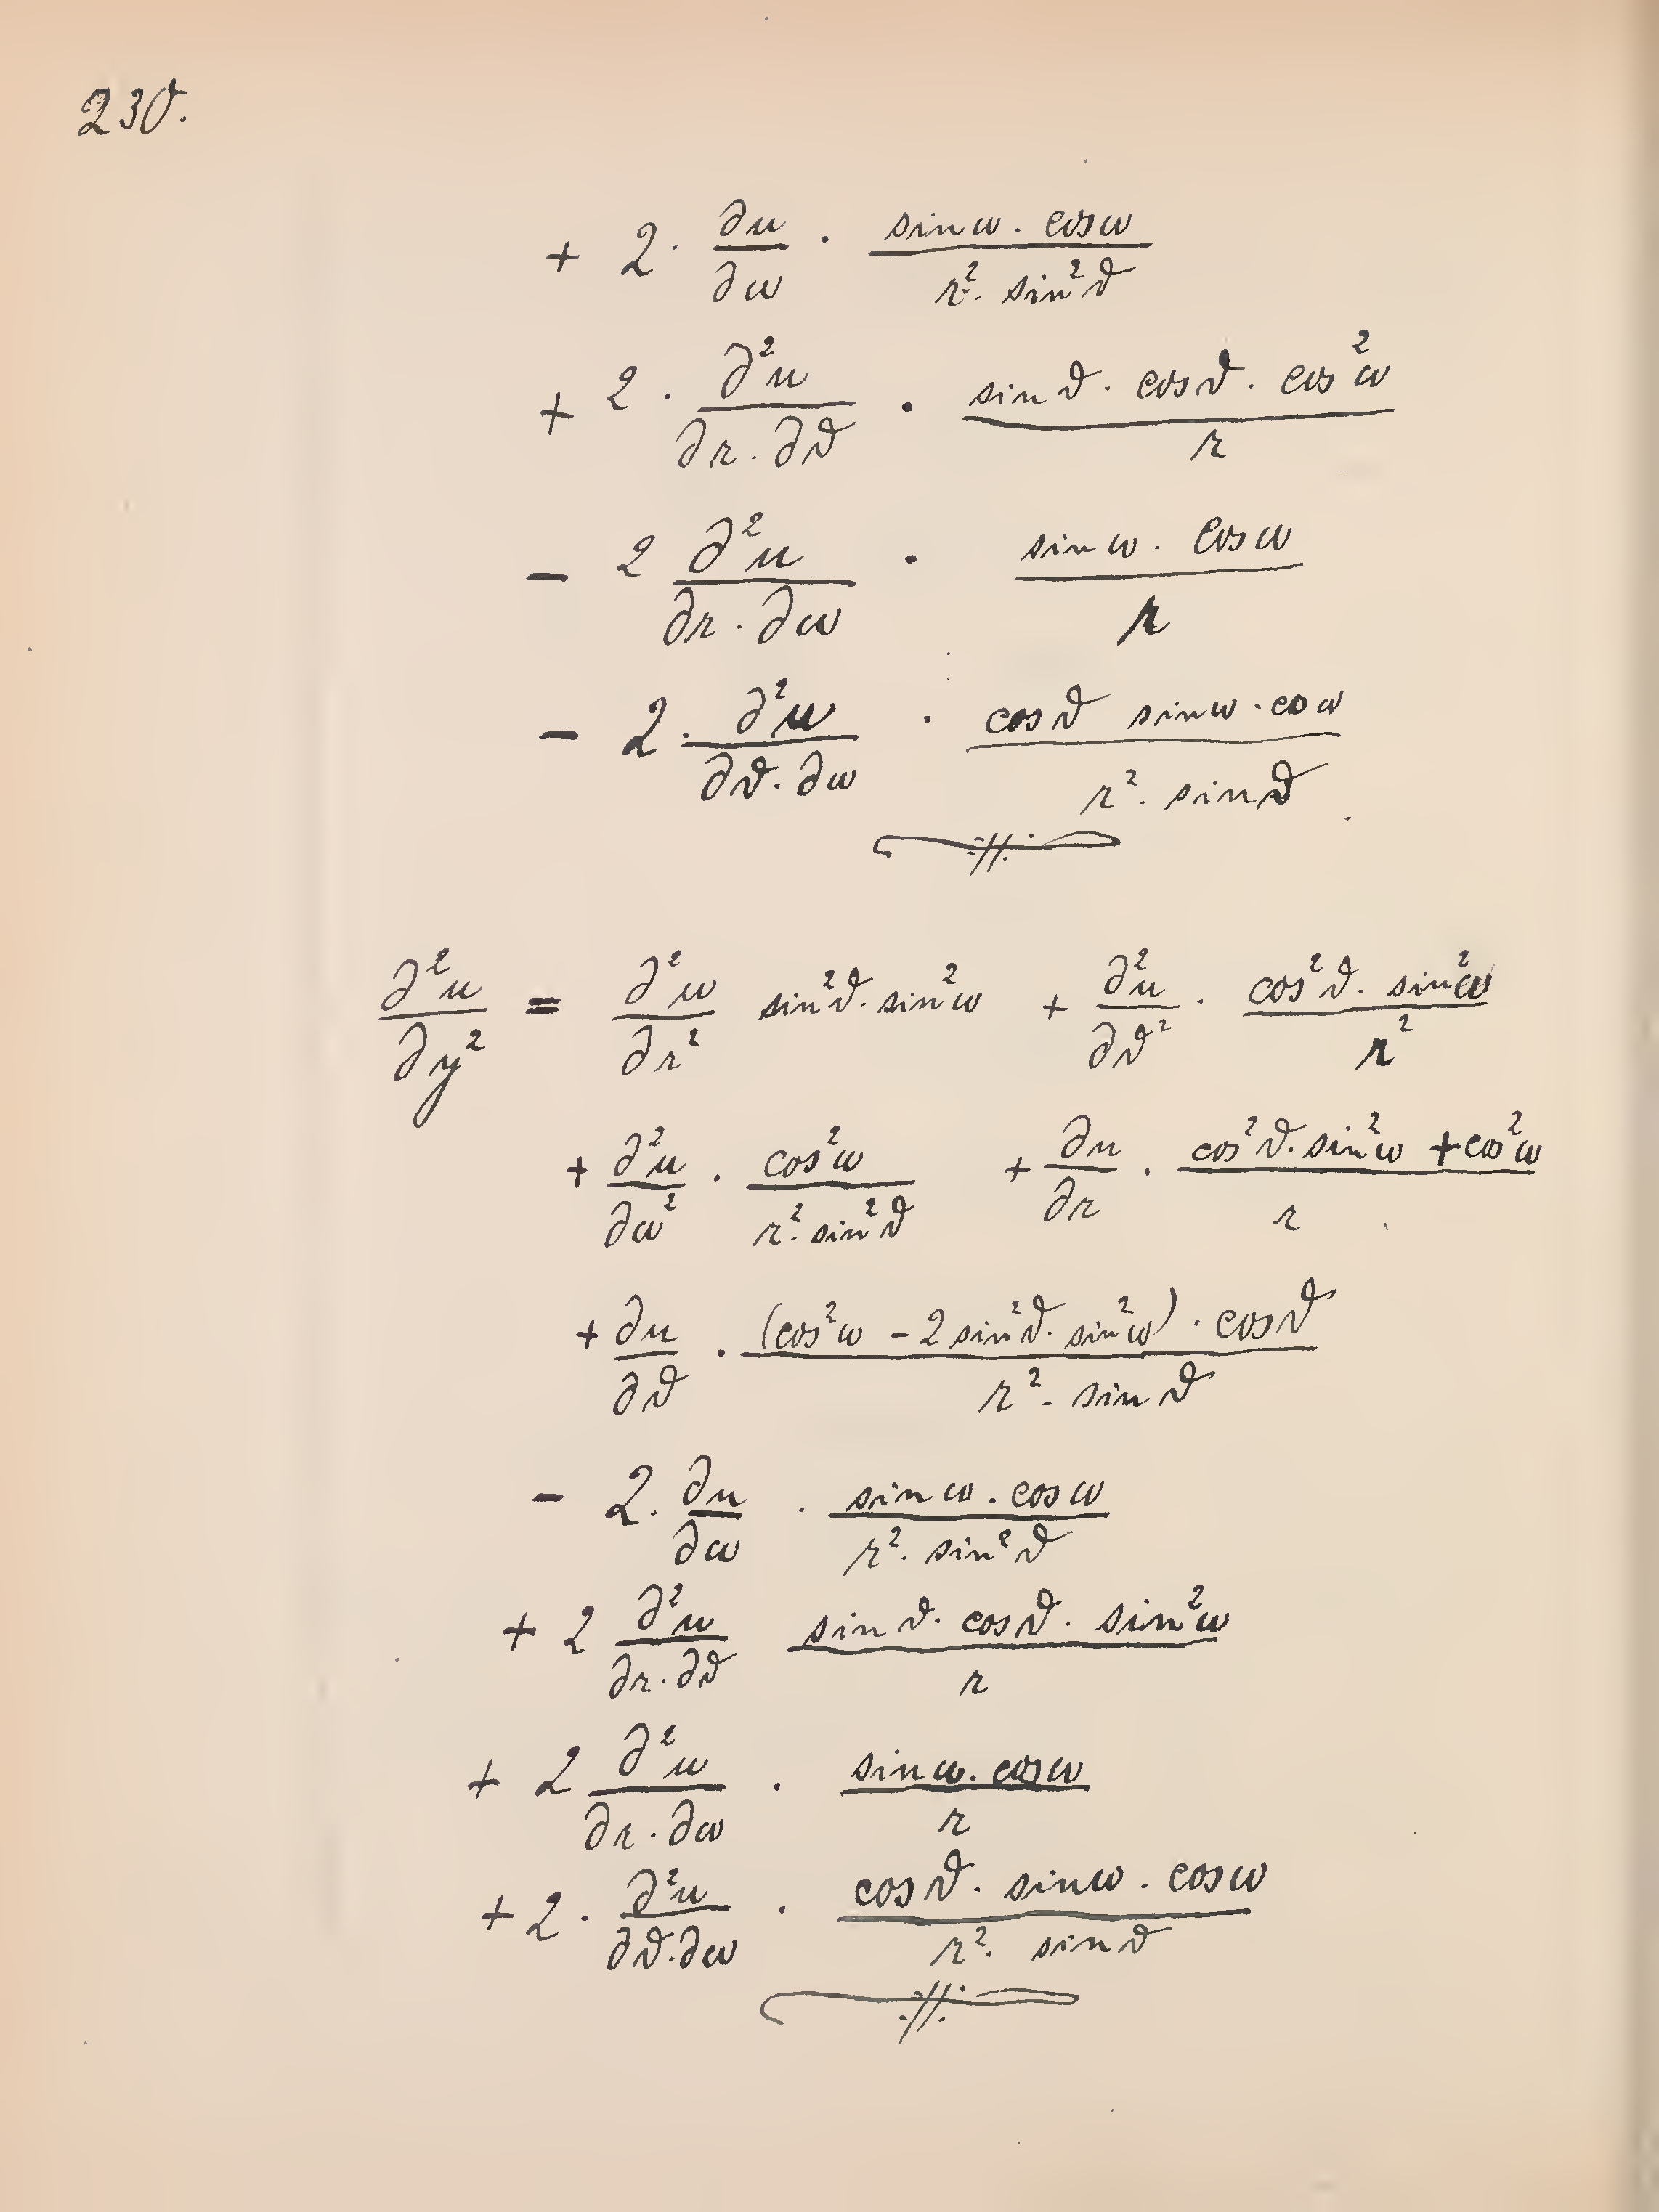 230.
$+ 2 \cdot \frac{\partial u}{\partial \omega} \cdot \frac{\sin \omega \cdot \cos \omega}{r^2 \cdot \sin^2 \vartheta}$
$+ 2 \cdot \frac{\partial^2 u}{\partial r \cdot \partial \vartheta} \cdot \frac{\sin \vartheta \cdot \cos \vartheta \cdot \cos^2 \omega}{r}$
$- 2 \frac{\partial^2 u}{\partial r \cdot \partial \omega} \cdot \frac{\sin \omega \cdot \cos \omega}{r}$
$- 2 \cdot \frac{\partial^2 u}{\partial \vartheta \cdot \partial \omega} \cdot \frac{\cos \vartheta \sin \omega \cdot \text{co} \omega}{r^2 \cdot \sin \vartheta}$
$\frac{\partial^2 u}{\partial y^2} = \frac{\partial^2 u}{\partial r^2} \sin^2 \vartheta \cdot \sin^2 \omega + \frac{\partial^2 u}{\partial \vartheta^2} \cdot \frac{\cos^2 \vartheta \cdot \sin^2 \omega}{r^2}$
$+ \frac{\partial^2 u}{\partial \omega^2} \cdot \frac{\cos^2 \omega}{r^2 \cdot \sin^2 \vartheta} + \frac{\partial u}{\partial r} \cdot \frac{\cos^2 \vartheta \cdot \sin^2 \omega + \cos^2 \omega}{r}$
$+ \frac{\partial u}{\partial \vartheta} \cdot \frac{(\cos^2 \omega - 2 \sin^2 \vartheta \cdot \sin^2 \omega) \cdot \cos \vartheta}{r^2 \cdot \sin \vartheta}$
$- 2 \cdot \frac{\partial u}{\partial \omega} \cdot \frac{\sin \omega \cdot \cos \omega}{r^2 \cdot \sin^2 \vartheta}$
$+ 2 \frac{\partial^2 u}{\partial r \cdot \partial \vartheta} \frac{\sin \vartheta \cdot \cos \vartheta \cdot \sin^2 \omega}{r}$
$+ 2 \frac{\partial^2 u}{\partial r \cdot \partial \omega} \cdot \frac{\sin \omega \cdot \cos \omega}{r}$
$+ 2 \cdot \frac{\partial^2 u}{\partial \vartheta \cdot \partial \omega} \cdot \frac{\cos \vartheta \cdot \sin \omega \cdot \cos \omega}{r^2 \cdot \sin \vartheta}$